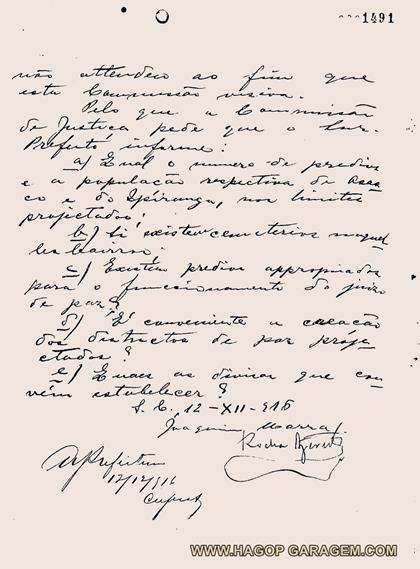 1491
não attendeu ao fim que
esta Commissão visava.
Pelo que a Commissão
de Justiça pede que o Snr.
Prefeito informe:
a) Qual o numero de predios
e a população respectiva de Osas
co e do Ypiranga, nos limites
projectados?
b) Si existem cemiterios naquel
les bairros.
c) Existem predios appropriados
para o funccionamento do juizo
de paz?
d) É conveniente a creação
dos districtos de paz proje
ctados?
e) Quaes as divisas que con
vém estabelecer?
S. C., 12-XII-916
Joaquim Marra
Rocha Azevedo
Á Prefeitura
12/12/916
WWW.HAGOP GARAGEM.COM